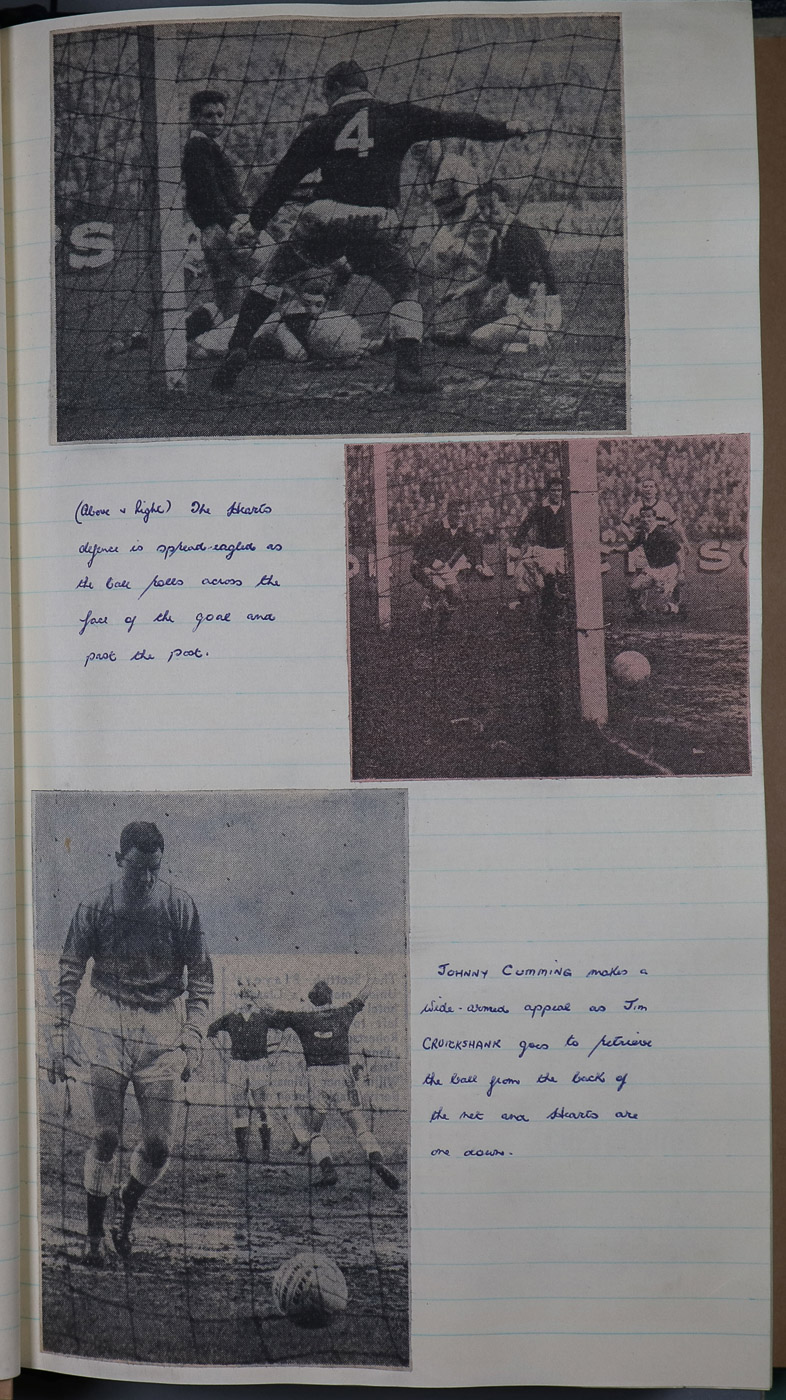 4
S
(Above & Right) The Hearts
defence is spread-eagled as
the ball rolls across the
face of the goal and
past the post.
S
JOHNNY CUMMING makes a
wide-armed appeal as Jim
CRUICKSHANK goes to retrieve
the ball from the back of
the net and Hearts are
one down.